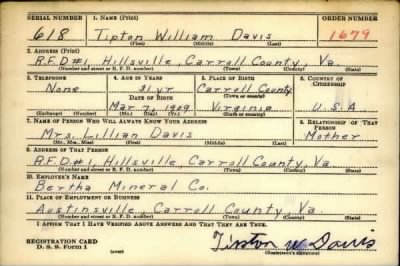 SERIAL NUMBER 1. NAME (Print) ORDER NUMBER
618 Tipton William Davis 1679
(First) (Middle) (Last)
2. ADDRESS (Print)
R.F.D#1, Hillsville, Carroll County, Va.
(Number and street or R. F. D. number) (Town) (County) (State)
3. TELEPHONE 4. AGE IN YEARS 5. PLACE OF BIRTH 6. COUNTRY OF CITIZENSHIP
None 31 yr Carroll County
DATE OF BIRTH (Town or county)
Mar. 7, 1909 Virginia U.S.A.
(Exchange) (Number) (Mo.) (Day) (Yr.) (State or country)
7. NAME OF PERSON WHO WILL ALWAYS KNOW YOUR ADDRESS 8. RELATIONSHIP OF THAT PERSON
Mrs. Lillian Davis Mother
(Mr., Mrs., Miss) (First) (Middle) (Last)
9. ADDRESS OF THAT PERSON
R.F.D#1, Hillsville, Carroll County, Va.
(Number and street or R. F. D. number) (Town) (County) (State)
10. EMPLOYER'S NAME
Bertha Mineral Co.
11. PLACE OF EMPLOYMENT OR BUSINESS
Austinsville, Carroll County, Va.
(Number and street or R. F. D. number) (Town) (County) (State)
I AFFIRM THAT I HAVE VERIFIED ABOVE ANSWERS AND THAT THEY ARE TRUE.
REGISTRATION CARD
D. S. S. Form 1 (over) Tipton W Davis
(Registrant's signature)